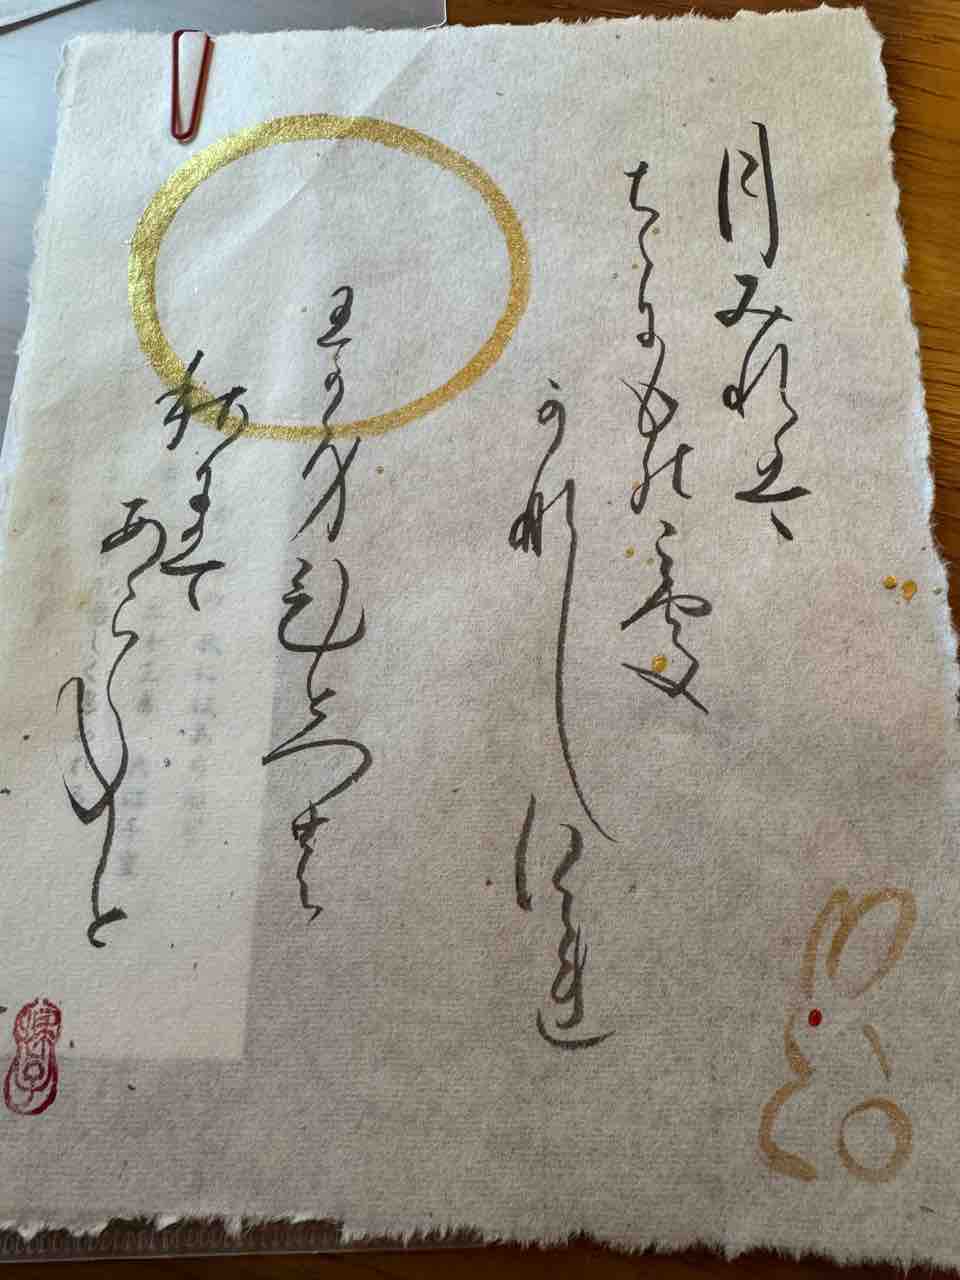 月みれは
ちゝにものこそ
かなしけれ
わか身ひとつの
秋には
あらねと